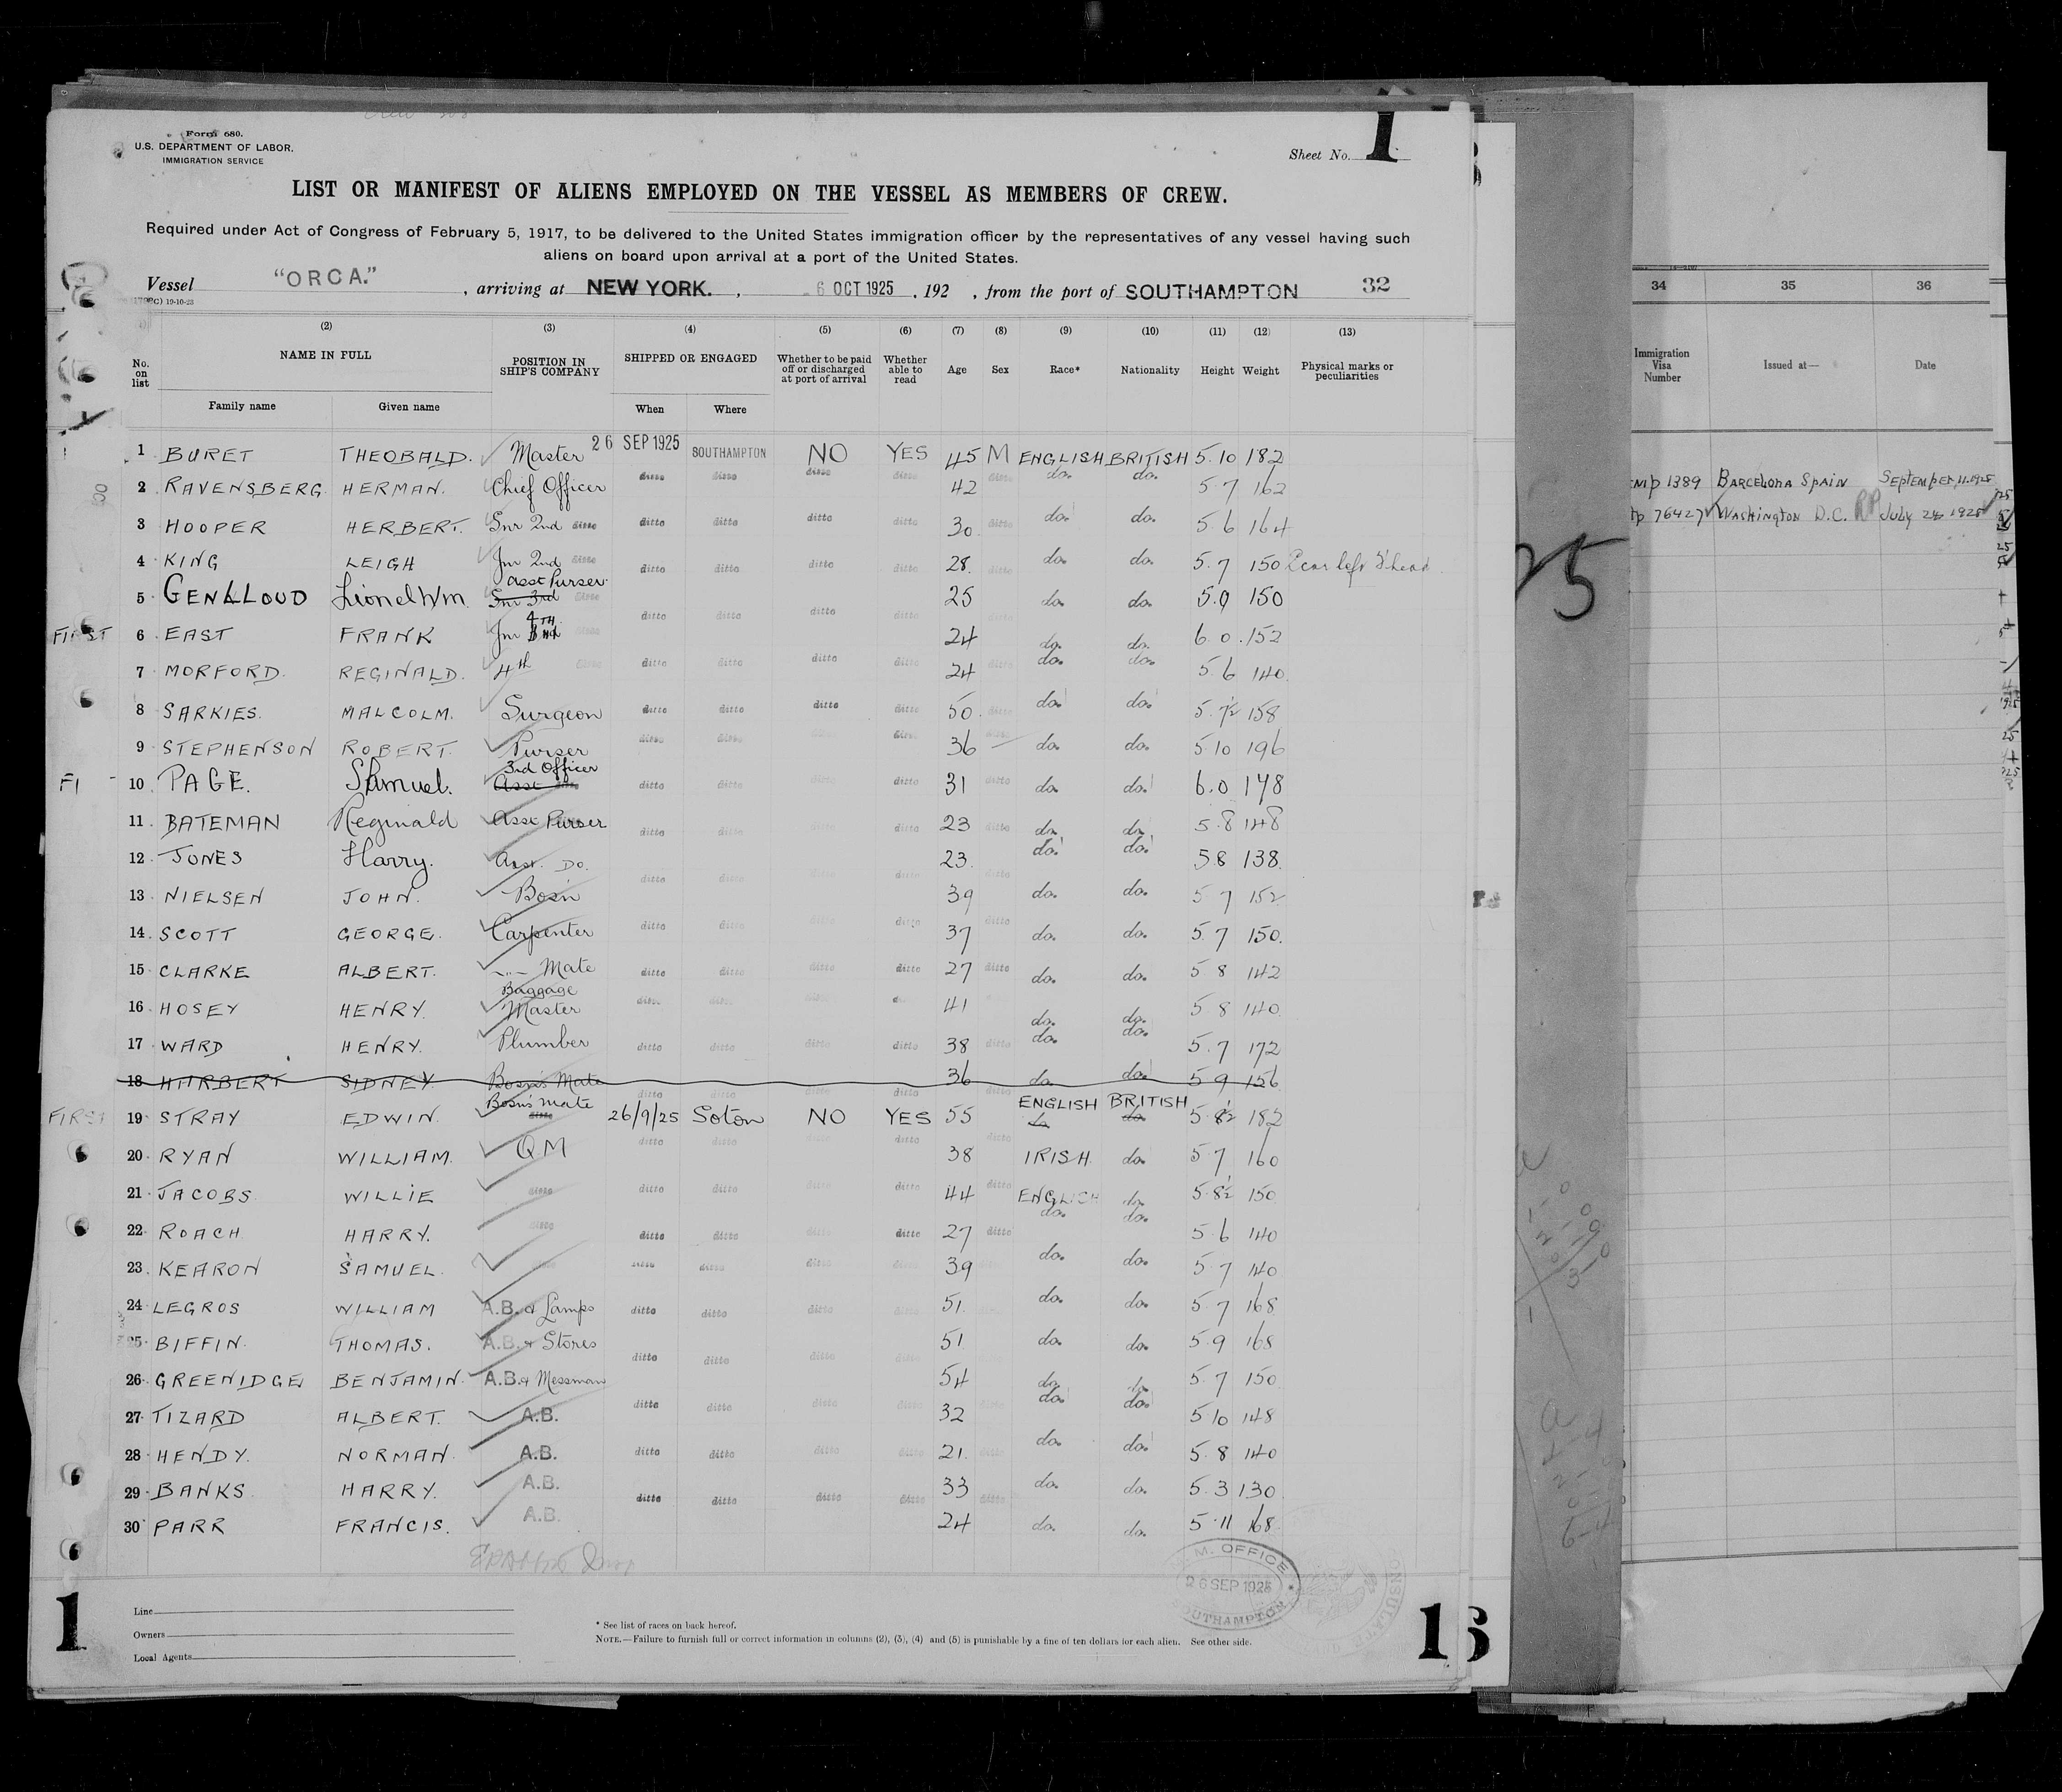 Form 680.
U.S. DEPARTMENT OF LABOR.
IMMIGRATION SERVICE
Sheet No. 1
LIST OR MANIFEST OF ALIENS EMPLOYED ON THE VESSEL AS MEMBERS OF CREW.
Required under Act of Congress of February 5, 1917, to be delivered to the United States immigration officer by the representatives of any vessel having such
aliens on board upon arrival at a port of the United States.
Vessel "ORCA.", arriving at NEW YORK., 6 OCT 1925, 192 , from the port of SOUTHAMPTON 32
19-10-23
(2) (3) (4) (5) (6) (7) (8) (9) (10) (11) (12) (13)
No. on list NAME IN FULL POSITION IN SHIP'S COMPANY SHIPPED OR ENGAGED Whether to be paid off or discharged at port of arrival Whether able to read Age Sex Race* Nationality Height Weight Physical marks or peculiarities
Family name Given name When Where
1 BURET THEOBALD. Master 26 SEP 1925 SOUTHAMPTON NO YES 45 M ENGLISH BRITISH 5.10 182
2 RAVENSBERG HERMAN. Chief Officer ditto ditto ditto ditto 42 ditto do. do. 5.7 162
3 HOOPER HERBERT. Snr 2nd ditto ditto ditto ditto ditto 30 ditto do. do. 5.6 164
4 KING LEIGH Jnr 2nd ditto ditto ditto ditto ditto 28 ditto do. do. 5.7 150 Scar left F'head
5 GENLLOUD Lionel Wm. Asst Purser Snr 3rd ditto ditto ditto ditto ditto 25 do. do. 5.9 150
FIRST 6 EAST FRANK Jnr 4TH 24 do. do. 6.0 152
7 MORFORD. REGINALD. 4th ditto ditto ditto ditto ditto 24 ditto do. do. 5.6 140
8 SARKIES. MALCOLM. Surgeon ditto ditto ditto ditto 50 ditto do. do. 5.7½ 158
9 STEPHENSON ROBERT. Purser ditto ditto ditto ditto 36 do. do. 5.10 196
10 PAGE. Samuel. 3rd Officer Asst ditto ditto ditto ditto ditto 31 do. do. 6.0 178
11 BATEMAN Reginald Asst Purser ditto ditto ditto ditto 23 ditto do. do. 5.8 148
12 JONES Harry. Asst. Do. 23 do. do. 5.8 138
13 NIELSEN JOHN. Bosn ditto ditto ditto ditto 39 ditto do. do. 5.7 152
14 SCOTT GEORGE. Carpenter ditto ditto ditto ditto 37 ditto do. do. 5.7 150.
15 CLARKE ALBERT. -"- Mate ditto ditto ditto ditto 27 ditto do. do. 5 8 142
16 HOSEY HENRY. Baggage Master 41 do. do. 5 8 140
17 WARD HENRY. Plumber ditto ditto ditto ditto 38 ditto do. do. 5.7 172
18 HARBERT SIDNEY Bosn's Mate ditto ditto ditto ditto 36 ditto do. do. 5 9 156
FIRST 19 STRAY EDWIN. Bosn's mate ditto 26/9/25 Soton NO YES 55 ENGLISH BRITISH do. do. 5 8½ 182
20 RYAN WILLIAM. QM ditto ditto ditto ditto 38 ditto IRISH. do. 5 7 160
21 JACOBS WILLIE ditto ditto ditto ditto ditto 44 ditto ENGLISH do. 5.8½ 150
22 ROACH HARRY. ditto ditto ditto ditto ditto 27 ditto do. do. 5 6 140
23 KEARON SAMUEL. ditto ditto ditto 39 do. do. 5 7 140
24 LEGROS WILLIAM A.B. & Lamps ditto ditto ditto ditto 51 do. do. 5 7 168
25 BIFFIN. THOMAS. A.B. & Stores ditto ditto ditto ditto 51 do. do. 5 9 168
26 GREENIDGE BENJAMIN. A.B. & Messman 54 do. do. 5.7 150
27 TIZARD ALBERT. A.B. ditto ditto ditto ditto 32 do. do. 5 10 148
28 HENDY. NORMAN. A.B. ditto ditto ditto ditto 21 do. do. 5.8 140
29 BANKS HARRY. A.B. ditto ditto ditto ditto 33 ditto do. do. 5.3 130
30 PARR FRANCIS. A.B. 24 do. do. 5.11 168
M.M. OFFICE
26 SEP 1925
SOUTHAMPTON
Line
Owners
Local Agents
* See list of races on back hereof.
NOTE.—Failure to furnish full or correct information in columns (2), (3), (4) and (5) is punishable by a fine of ten dollars for each alien. See other side.
1
16
34 35 36
Immigration Visa Number Issued at— Date
1389 BARCELONA SPAIN SEPTEMBER 11.1925
76427 WASHINGTON D.C. JULY 24 1925
25